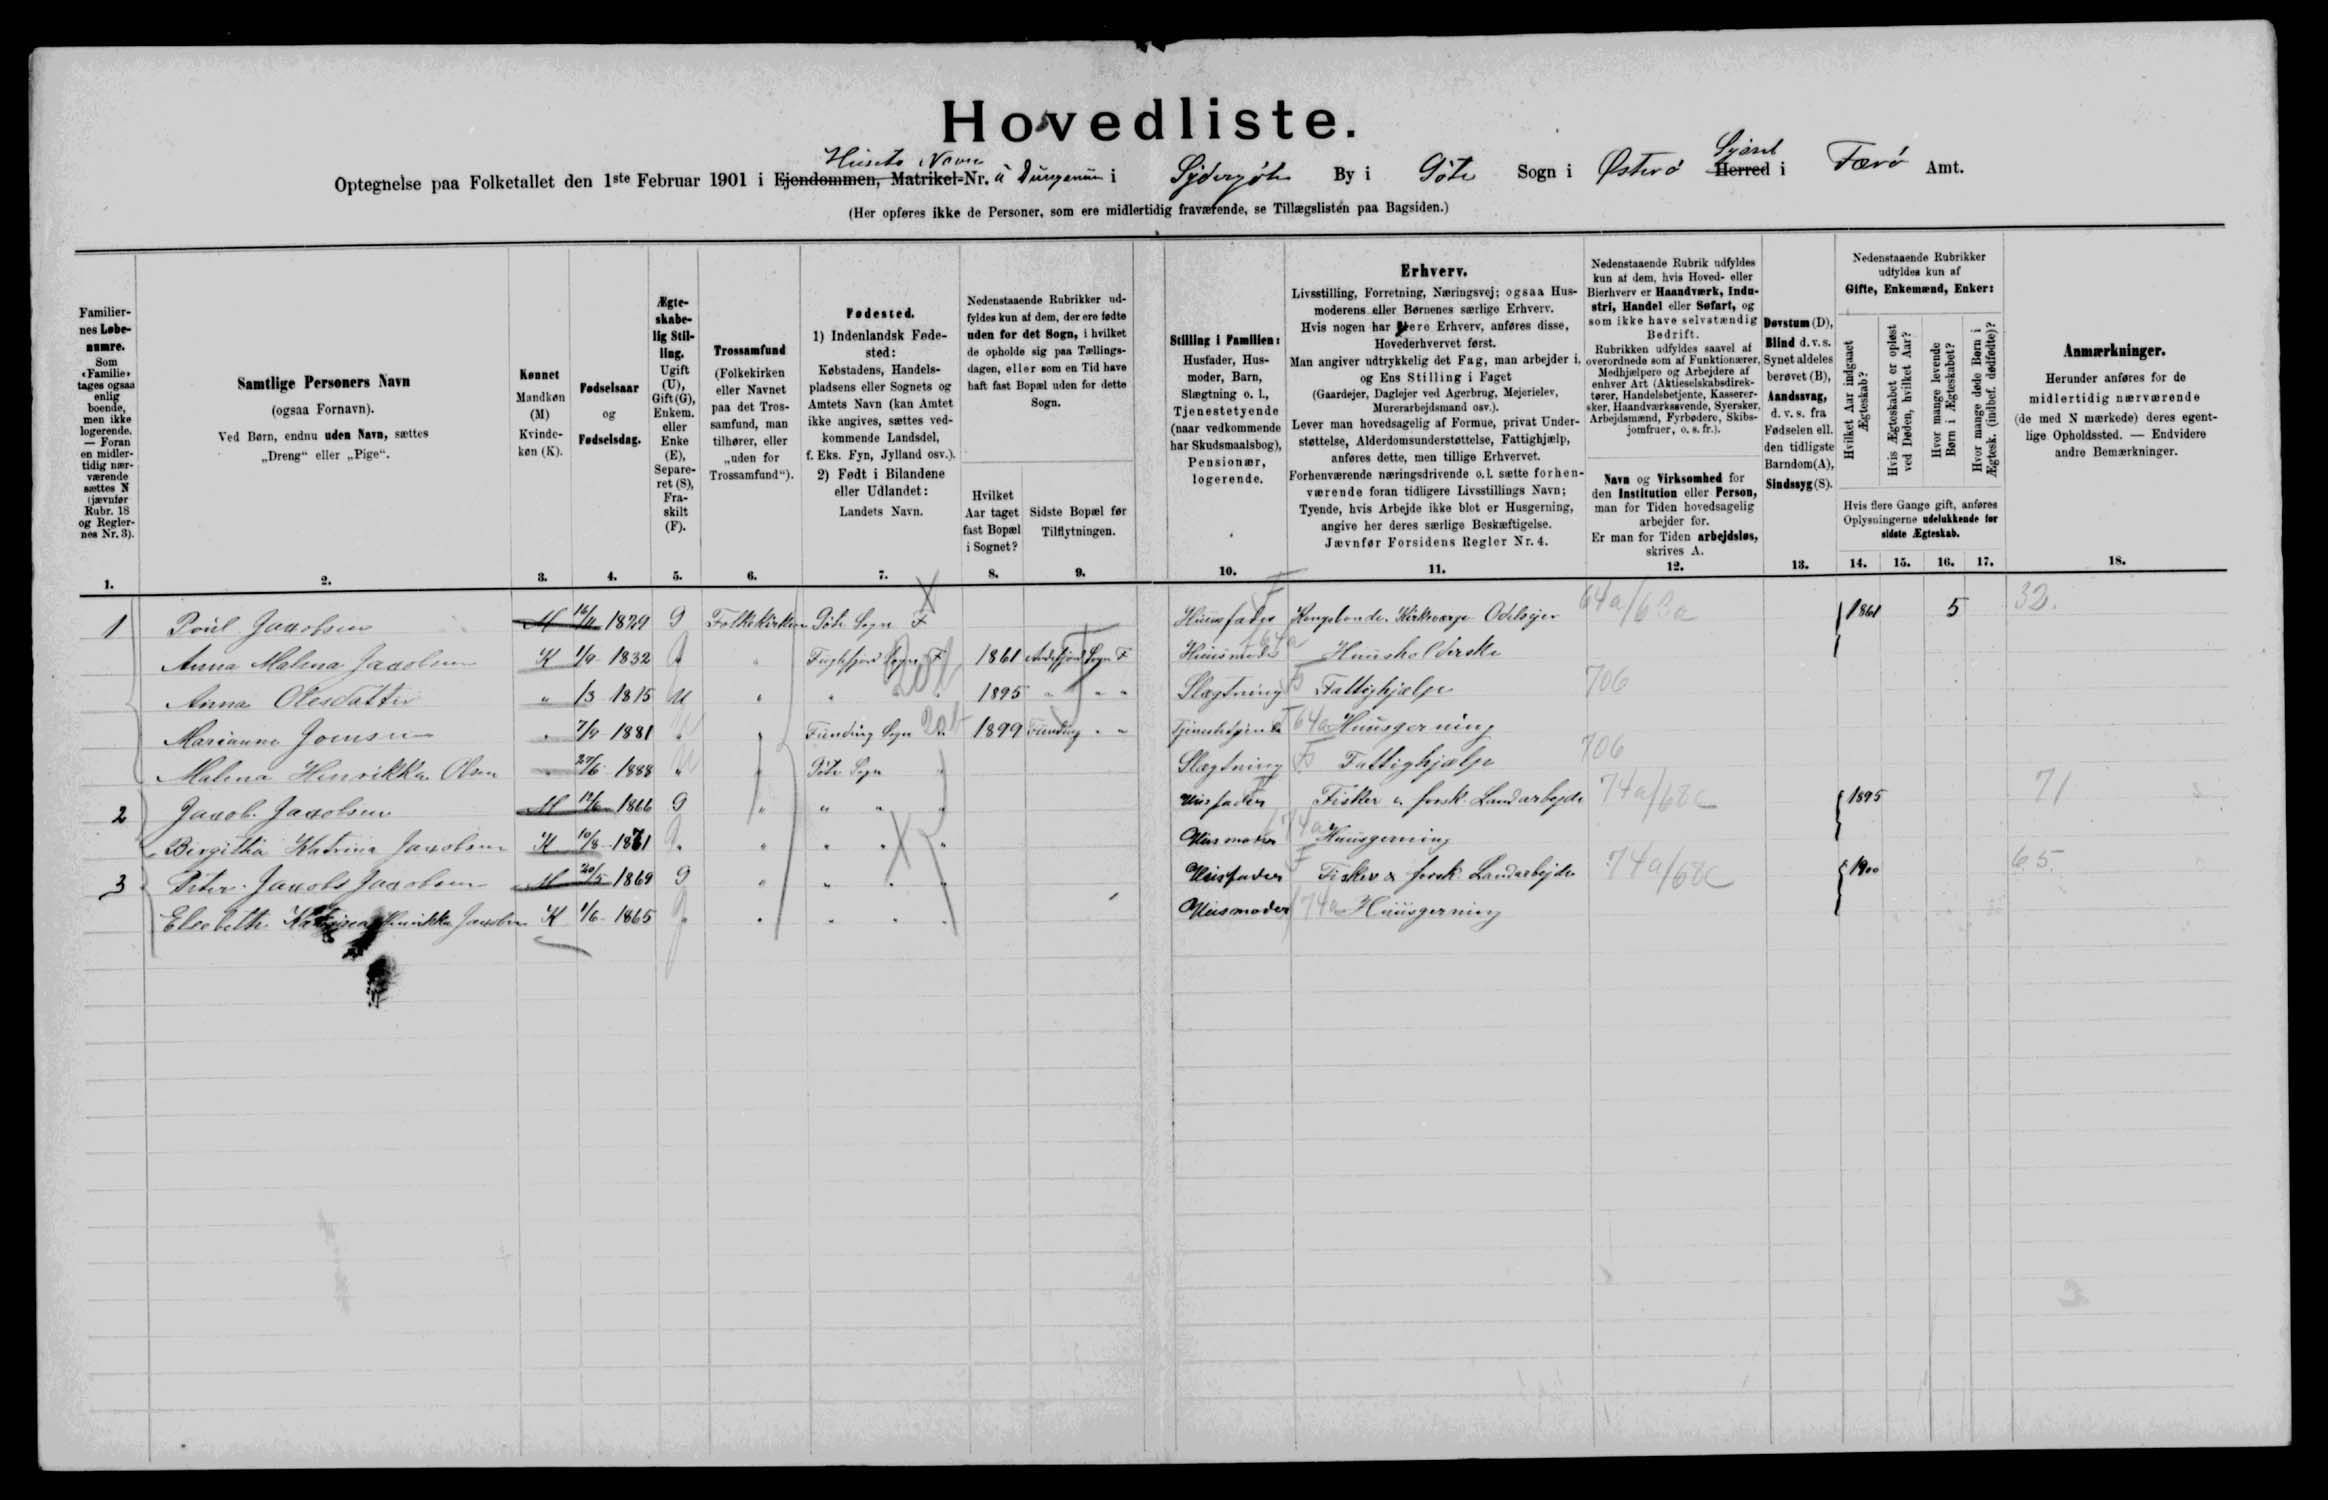 Hovedliste.
Huusets Navn Syssel
Optegnelse paa Folketallet den 1ste Februar 1901 i Ejendommen, Matrikel-Nr. i Sydergöte By i Göte Sogn i Østerö Herred i Færö Amt.
(Her opføres ikke de Personer, som ere midlertidig fraværende, se Tillægslisten paa Bagsiden.)
Familiernes Løbenumre.
Som «Familie» tages ogsaa enlig boende, men ikke logerende. — Foran en midlertidig nærværende sættes N (jævnfør Rubr. 18 og Reglernes Nr. 3).
1.
Samtlige Personers Navn
(ogsaa Fornavn).
Ved Børn, endnu uden Navn, sættes
„Dreng“ eller „Pige“.
2.
Kønnet
Mandkøn (M)
Kvindekøn (K).
3.
Fødselsaar
og
Fødselsdag.
4.
Ægteskabelig Stilling.
Ugift (U), Gift (G), Enkem. eller Enke (E), Separeret (S), Fraskilt (F).
5.
Trossamfund
(Folkekirken eller Navnet paa det Trossamfund, man tilhører, eller „uden for Trossamfund“).
6.
Fødested.
1) Indenlandsk Fødested:
Købstadens, Handelspladsens eller Sognets og Amtets Navn (kan Amtet ikke angives, sættes vedkommende Landsdel, f. Eks. Fyn, Jylland osv.).
2) Født i Bilandene eller Udlandet:
Landets Navn.
7.
Nedenstaaende Rubrikker udfyldes kun af dem, der ere fødte uden for det Sogn, i hvilket de opholde sig paa Tællingsdagen, eller som en Tid have haft fast Bopæl uden for dette Sogn.
Hvilket Aar taget fast Bopæl i Sognet?
8.
Sidste Bopæl før Tilflytningen.
9.
Stilling i Familien:
Husfader, Husmoder, Barn, Slægtning o. l., Tjenestetyende (naar vedkommende har Skudsmaalsbog), Pensionær, logerende.
10.
Erhverv.
Livsstilling, Forretning, Næringsvej; ogsaa Husmoderens eller Børnenes særlige Erhverv.
Hvis nogen har flere Erhverv, anføres disse, Hovederhvervet først.
Man angiver udtrykkelig det Fag, man arbejder i, og Ens Stilling i Faget
(Gaardejer, Daglejer ved Agerbrug, Mejerielev, Murerarbejdsmand osv.).
Lever man hovedsagelig af Formue, privat Understøttelse, Alderdomsunderstøttelse, Fattighjælp, anføres dette, men tillige Erhvervet.
Forhenværende næringsdrivende o. l. sætte forhenværende foran tidligere Livsstillings Navn;
Tyende, hvis Arbejde ikke blot er Husgerning, angive her deres særlige Beskæftigelse.
Jævnfør Forsidens Regler Nr. 4.
11.
Nedenstaaende Rubrik udfyldes kun af dem, hvis Hoved- eller Bierhverv er Haandværk, Industri, Handel eller Søfart, og som ikke have selvstændig Bedrift.
Rubrikken udfyldes saavel af overordnede som af Funktionærer, Medhjælpere og Arbejdere af enhver Art (Aktieselskabsdirektører, Handelsbetjente, Kasserersker, Haandværkssvende, Syersker, Arbejdsmænd, Fyrbødere, Skibsjomfruer, o. s. fr.).
Navn og Virksomhed for den Institution eller Person, man for Tiden hovedsagelig arbejder for.
Er man for Tiden arbejdsløs, skrives A.
12.
Døvstum (D), Blind d. v. s. Synet aldeles berøvet (B), Aandssvag, d. v. s. fra Fødselen ell. den tidligste Barndom (A), Sindssyg (S).
13.
Nedenstaaende Rubrikker udfyldes kun af
Gifte, Enkemænd, Enker:
Hvilket Aar indgaaet Ægteskab?
Hvis Ægteskabet er opløst ved Døden, hvilket Aar?
Hvor mange levende Børn i Ægteskabet?
Hvor mange døde Børn i Ægtesk. (indbef. dødfødte)?
Hvis flere Gange gift, anføres Oplysningerne udelukkende for sidste Ægteskab.
14. 15. 16. 17.
Anmærkninger.
Herunder anføres for de midlertidig nærværende (de med N mærkede) deres egentlige Opholdssted. — Endvidere andre Bemærkninger.
18.
1 Poul Jacobsen M 16/11 1829 G Folkekirken Göte Sogn F Huusfader Kongsbonde. Kirkeværge Odelsejer 1861 5 32.
Anna Malena Jacobsen K 1/9 1832 Fuglefjord Sogn F 1861 Andefjord Sogn F Huusmoder Huusholderske
Anna Olesdatter " 13 1815 U " " 1895 " " " Slægtning Fattighjælp 706
Marianne Joensen " 7/9 1881 " " Funding Sogn " 1899 Funding " " Huusgerning
Malena Henrikka Olsen " 27/6 1888 " " Göte Sogn " Slægtning Fattighjælp 706
2 Jacob Jacobsen M 12/6 1866 G " " " " Husfader Fisker & forsk. Landarbejde 74a/68c 1895 71
Birgitha Katrina Jacobsen K 10/8 1871 " " " " Husmoder Huusgerning
3 Peter Jacob Jacobsen M 20/5 1869 G " " " " Huusfader Fisker & forsk. Landarbejde 74a/68c 1900 65.
Elsebeth Katrina Henrikka Jacobsen K 1/6 1865 " " " " Huusmoder 74a Huusgerning